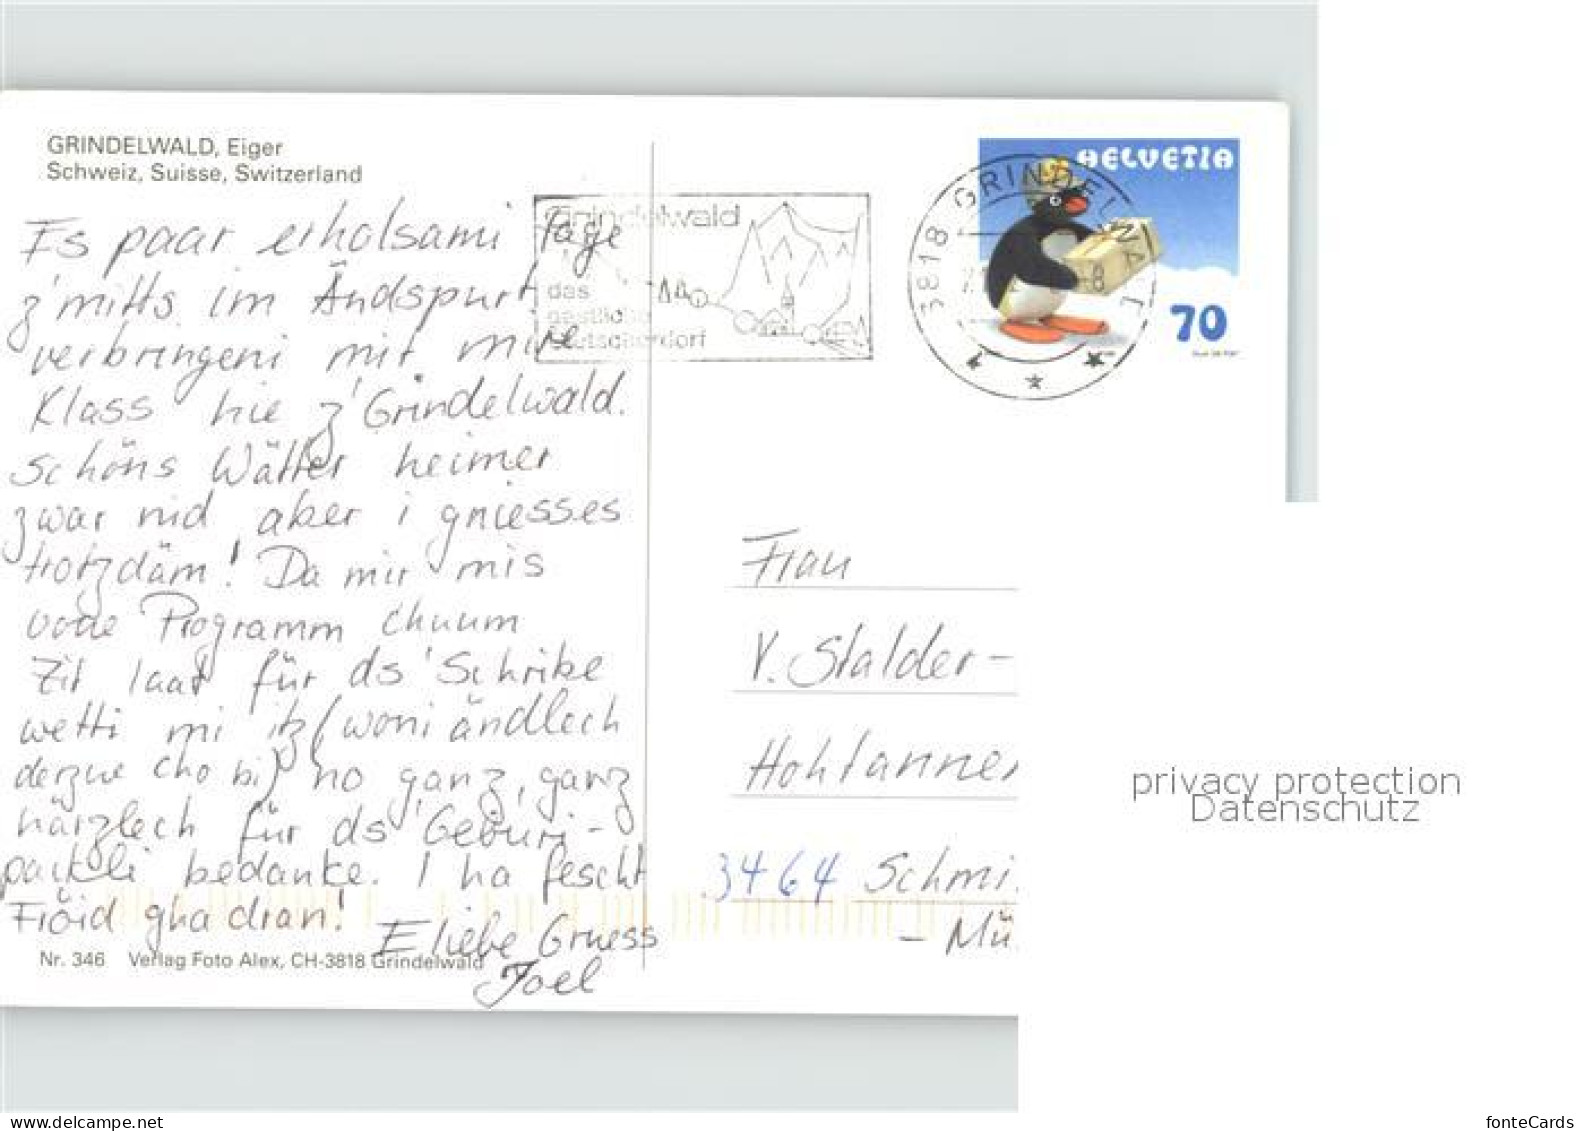 GRINDELWALD, Eiger
Schweiz, Suisse, Switzerland
Es paar erholsami Täge
z'mitts im Ändspurt
verbringeni mit mire
Klass hie z'Grindelwald.
Schöns Wätter heimer
zwar nid aber i gniesses
trotzdäm! Da mir mis
volle Programm chuum
Zit laat für ds'Schribe
wetti mi itz (woni ändlech
derzue cho bi) no ganz, ganz
härzlech für ds'Geburi-
päckli bedanke. I ha fescht
Fröid gha dran!
E liebe Gruess
Joel
Nr. 346 Verlag Foto Alex, CH-3818 Grindelwald
Grindelwald
das
gastliche
Gletscherdorf
3818 GRINDELWALD
HELVETIA
70
Frau
V. Stalder-
Hohtannen
3464 Schmi
- Mü
privacy protection
Datenschutz
fonteCards
www.delcampe.net